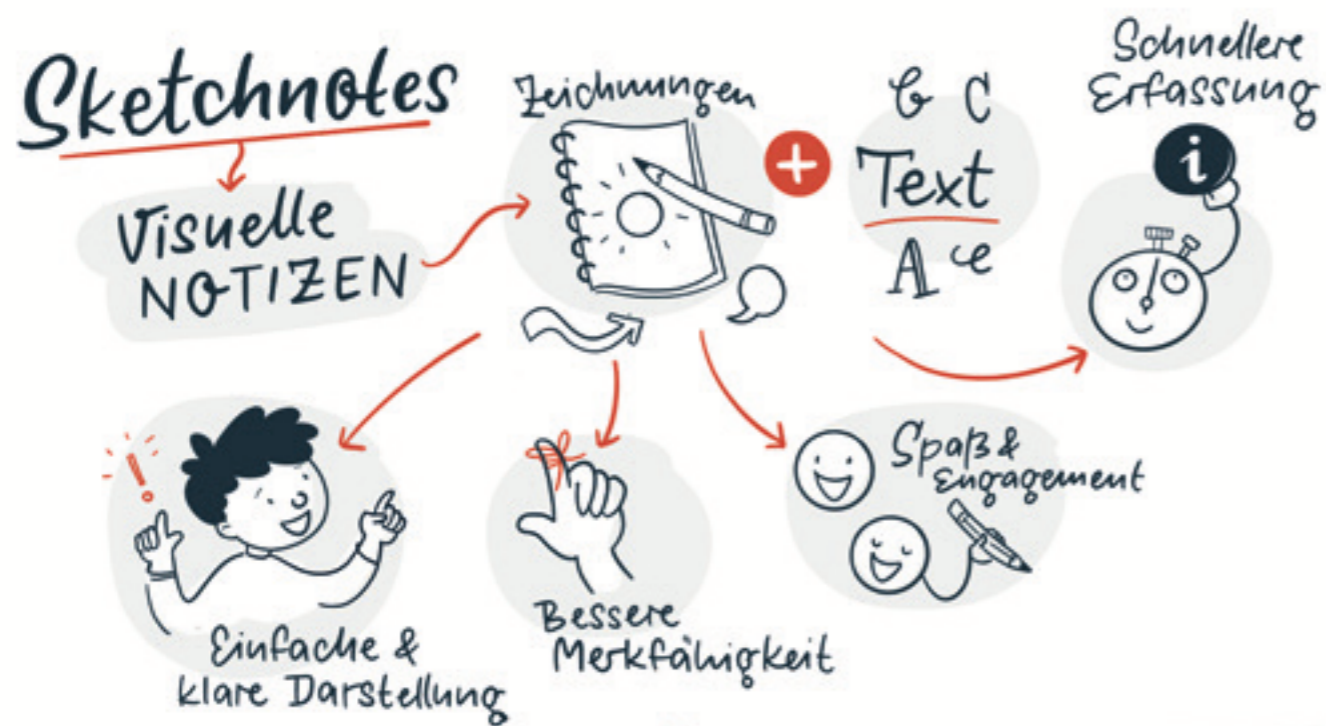 Sketchnotes
Visuelle
NOTIZEN
Zeichnungen
+
b C
Text
A e
Schnellere
Erfassung
i
!
Einfache &
klare Darstellung
Bessere
Merkfähigkeit
Spaß &
Engagement